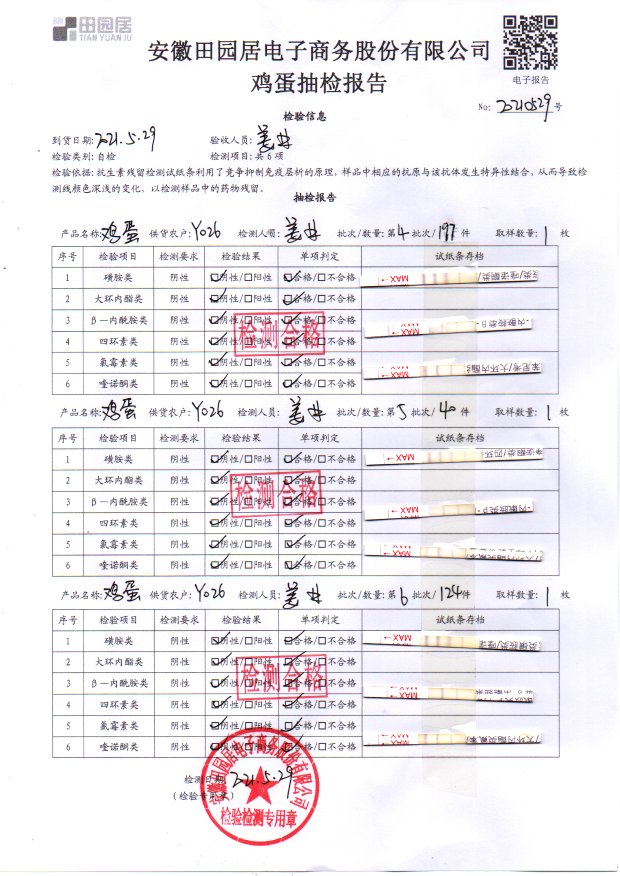 田园居
TIAN YUAN JU
安徽田园居电子商务股份有限公司
鸡蛋抽检报告
电子报告
No: 20210529 号
检验信息
到货日期: 2021.5.29 验收人员:
检验类别: 自检 检测项目: 共6项
检验依据: 抗生素残留检测试纸条利用了竞争抑制免疫层析的原理, 样品中相应的抗原与该抗体发生特异性结合, 从而导致检
测线颜色深浅的变化, 以检测样品中的药物残留。
抽检报告
产品名称: 鸡蛋 供货农户: Y026 检测人员: 批次/数量: 第4批次/197件 取样数量: 1 枚
序号 检验项目 检测要求 检验结果 单项判定 试纸条存档
1 磺胺类 阴性 ☑阴性/□阳性 ☑合格/□不合格 MAX
2 大环内酯类 阴性 ☑阴性/□阳性 ☑合格/□不合格
3 β—内酰胺类 阴性 ☑阴性/□阳性 ☑合格/□不合格 MAX
4 四环素类 阴性 ☑阴性/□阳性 ☑合格/□不合格
5 氯霉素类 阴性 ☑阴性/□阳性 ☑合格/□不合格 MAX
6 喹诺酮类 阴性 ☑阴性/□阳性 ☑合格/□不合格
检测合格
产品名称: 鸡蛋 供货农户: Y026 检测人员: 批次/数量: 第5批次/40件 取样数量: 1 枚
序号 检验项目 检测要求 检验结果 单项判定 试纸条存档
1 磺胺类 阴性 ☑阴性/□阳性 ☑合格/□不合格 MAX
2 大环内酯类 阴性 ☑阴性/□阳性 ☑合格/□不合格
3 β—内酰胺类 阴性 ☑阴性/□阳性 ☑合格/□不合格 MAX
4 四环素类 阴性 ☑阴性/□阳性 ☑合格/□不合格
5 氯霉素类 阴性 ☑阴性/□阳性 ☑合格/□不合格 MAX
6 喹诺酮类 阴性 ☑阴性/□阳性 ☑合格/□不合格
检测合格
产品名称: 鸡蛋 供货农户: Y026 检测人员: 批次/数量: 第6批次/124件 取样数量: 1 枚
序号 检验项目 检测要求 检验结果 单项判定 试纸条存档
1 磺胺类 阴性 ☑阴性/□阳性 ☑合格/□不合格 MAX
2 大环内酯类 阴性 ☑阴性/□阳性 ☑合格/□不合格
3 β—内酰胺类 阴性 ☑阴性/□阳性 ☑合格/□不合格 MAX
4 四环素类 阴性 ☑阴性/□阳性 ☑合格/□不合格
5 氯霉素类 阴性 ☑阴性/□阳性 ☑合格/□不合格 MAX
6 喹诺酮类 阴性 ☑阴性/□阳性 ☑合格/□不合格
检测合格
检测日期: 2021.5.29
(检验专用章)
安徽田园居电子商务股份有限公司
检验检测专用章